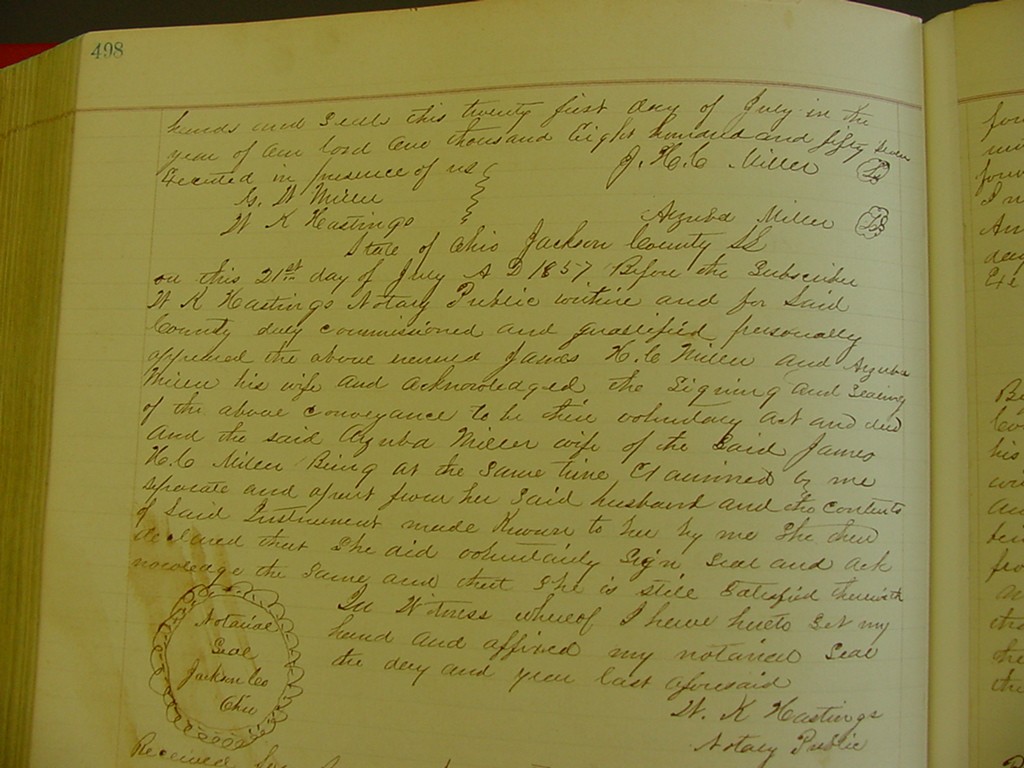 498
hands and Seals this twenty first day of July in the
year of our lord one thousand Eight hundred and fifty Seven
Executed in presence of us J. H. C Miller LS
G. W Miller
W K Hastings Azuba Miller LS
State of Ohio Jackson County SS
on this 21st day of July A D 1857 Before the Subscriber
W K Hastings Notary Public within and for Said
County duly commissioned and qualified personally
appeared the above named James H. C Miller and Azuba
Miller his wife and acknowledged the Signing and Sealing
of the above conveyance to be their voluntary act and deed
And the said Azuba Miller wife of the Said James
H. C Miller Being at the Same time Examined by me
Seperate and apart from her Said husband and the Contents
of Said Instrument made Known to her by me She then
declared that She did voluntarily Sign Seal and ack
nowledge the Same and that She is still Satisfied therewith
In Witness whereof I have hereto Set my
hand and affixed my notarial Seal
the day and year last aforesaid
Notarial
Seal
Jackson Co
Ohio
W. K Hastings
Notary Public
Received for